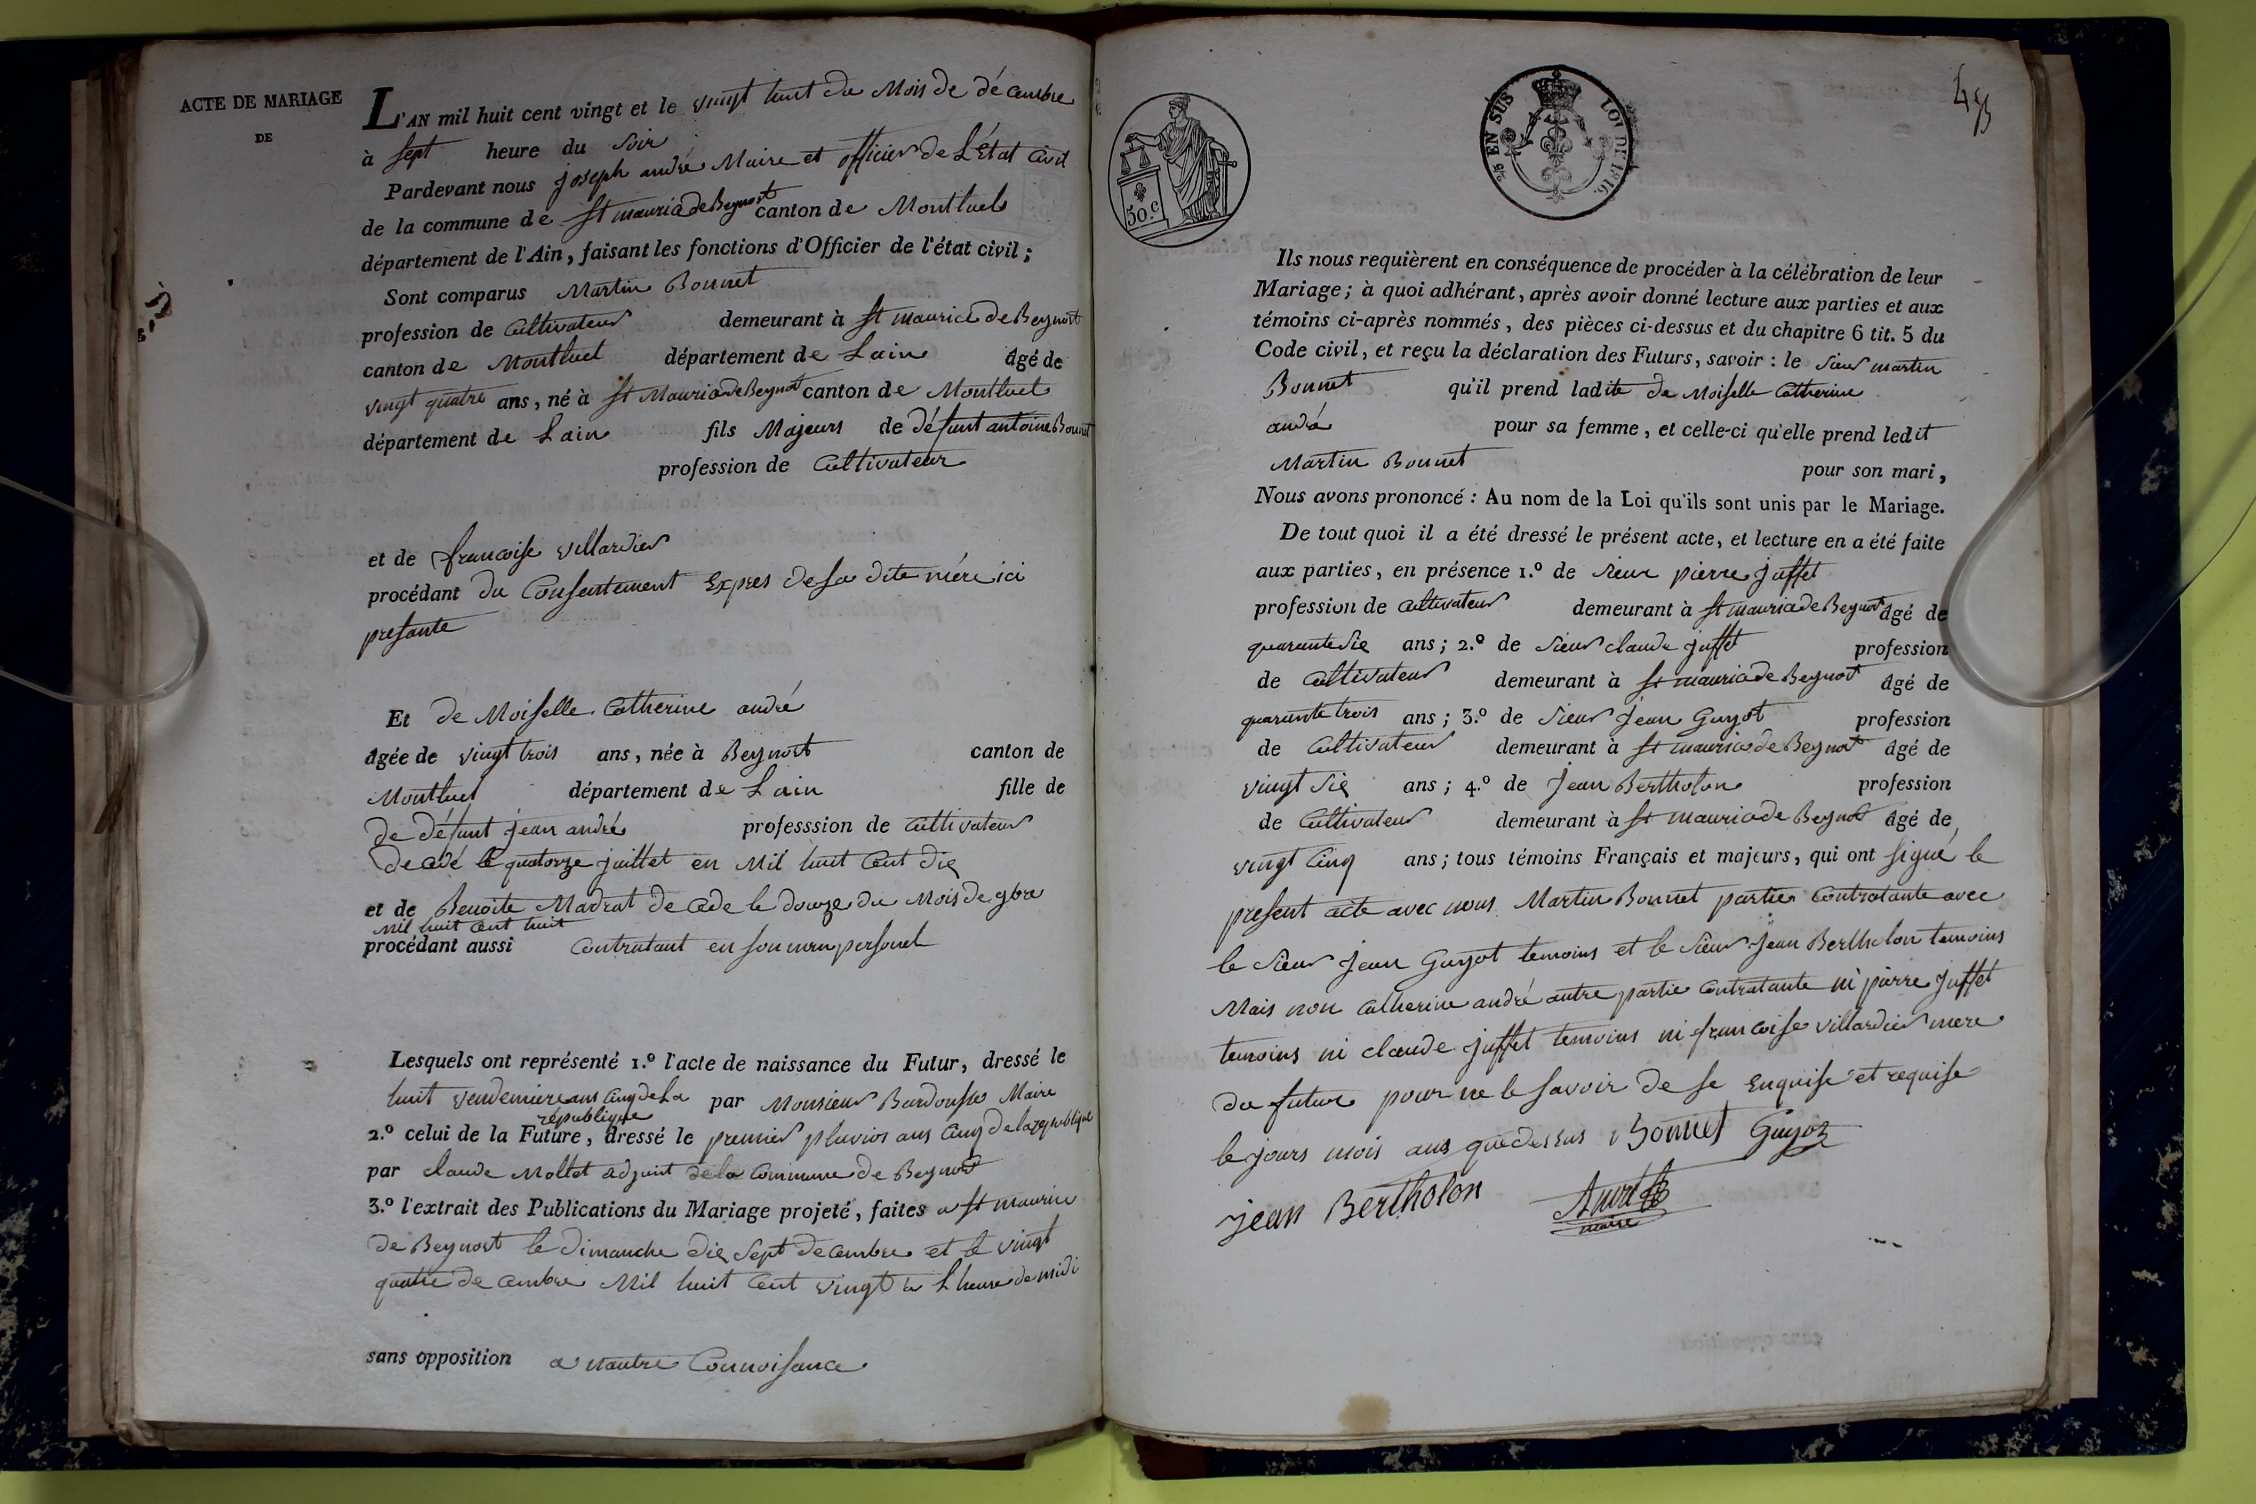 ACTE DE MARIAGE
DE
L'AN mil huit cent vingt et le vingt huit du Mois de décembre
à sept heure du soir
Pardevant nous joseph andré Maire et officier de L'État Civil
de la commune de st maurice de Beynost canton de Montluel
département de l'Ain, faisant les fonctions d'Officier de l'état civil;
Sont comparus Martin Bonnet
profession de Cultivateur demeurant à st maurice de Beynost
canton de Montluel département de Lain âgé de
vingt quatre ans, né à st Maurice de Beynost canton de Montluel
département de Lain fils Majeurs de défunt antoine Bonnet
profession de Cultivateur
et de francoise villardier
procédant du Consentement Expres de sa dite mère ici
presante
Et de Moiselle Catherine andré
âgée de vingt trois ans, née à Beynost canton de
Montluel département de Lain fille de
de défunt jean andré professsion de Cultivateur
decedé le quatorze juillet en Mil huit Cent dix
et de Benoite Madrat decede le douze du Mois de 9bre
Mil huit Cent huit
procédant aussi Contratant en son nom personel
Lesquels ont représenté 1.º l'acte de naissance du Futur, dressé le
huit vendemiere ans Cinq de La république par Monsieur Bardousse Maire
2.º celui de la Future, dressé le premier pluvios ans Cinq de la republique
par claude Mollet adjoint de la Commune de Beynost
3.º l'extrait des Publications du Mariage projeté, faites a st maurice
de Beynost le dimanche dix sept decembre et le vingt
quatre decembre Mil huit Cent vingt a L heure de midi
sans opposition a nautre Connoisance
50.c
25 EN SUS
LOI DE 1816.
45
Ils nous requièrent en conséquence de procéder à la célébration de leur
Mariage; à quoi adhérant, après avoir donné lecture aux parties et aux
témoins ci-après nommés, des pièces ci-dessus et du chapitre 6 tit. 5 du
Code civil, et reçu la déclaration des Futurs, savoir: le sieur martin
Bonnet qu'il prend ladite de Moiselle Catherine
andré pour sa femme, et celle-ci qu'elle prend ledit
Martin Bonnet pour son mari,
Nous avons prononcé: Au nom de la Loi qu'ils sont unis par le Mariage.
De tout quoi il a été dressé le présent acte, et lecture en a été faite
aux parties, en présence 1.º de sieur pierre juffet
profession de Cultivateur demeurant à st maurice de Beynost âgé de
quarante six ans; 2.º de sieur claude juffet profession
de Cultivateur demeurant à st maurice de Beynost âgé de
quarante trois ans; 3.º de sieur Jean Guyot profession
de Cultivateur demeurant à st maurice de Beynost âgé de
vingt six ans; 4.º de Jean Bertholon profession
de Cultivateur demeurant à st maurice de Beynost âgé de
vingt Cinq ans; tous témoins Français et majeurs, qui ont signé le
present acte avec nous Martin Bonnet partie Contratante avec
le sieur Jean Guyot temoins et le sieur Jean Bertholon temoins
Mais non Catherine andré autre partie Contratante ni pierre Juffet
temoins ni claude juffet temoins ni francoise villardier mere
du futur pour ne le savoir de se Enquise et requise
le jours mois ans que dessus Bonnet Guyot
jean Bertholon André
maire